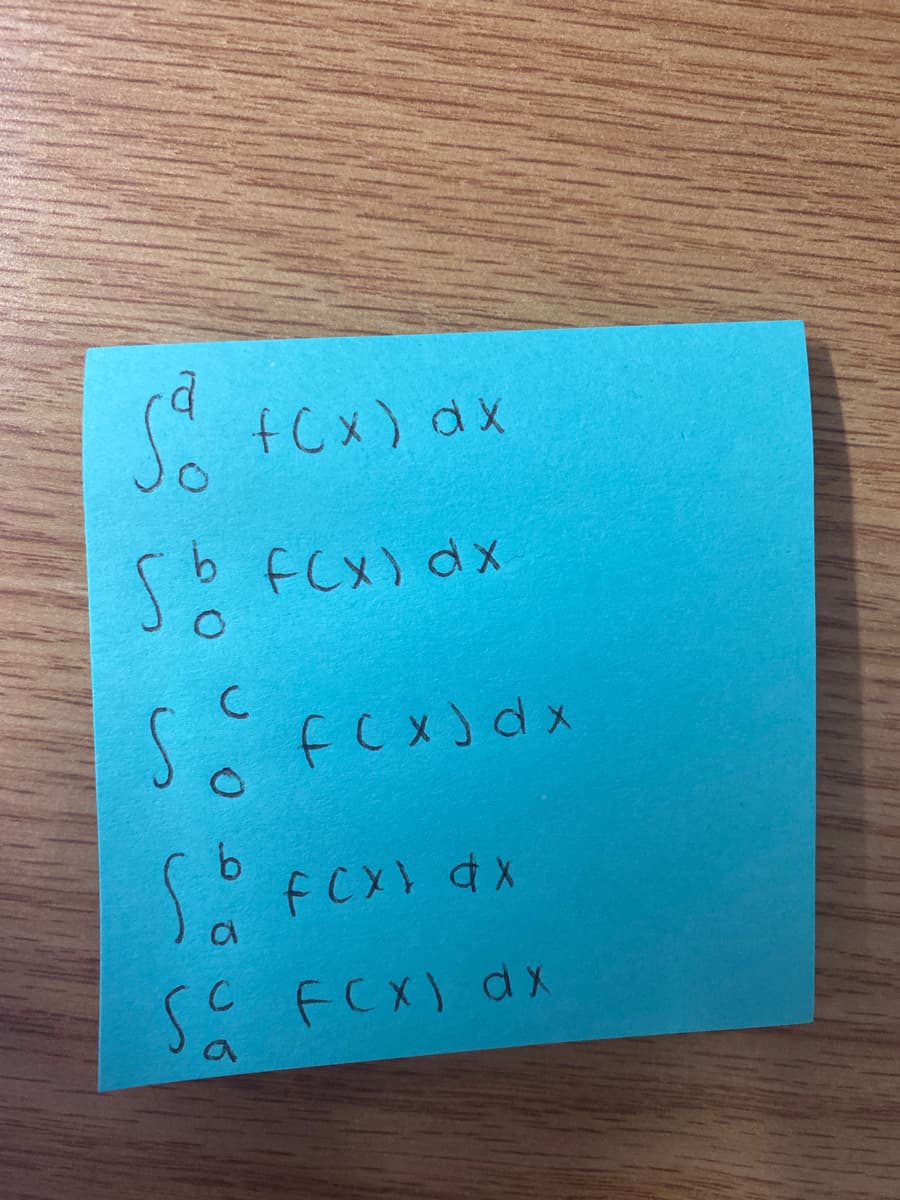 ∫₀ᵈ f(x) dx
∫₀ᵇ f(x) dx
∫₀ᶜ f(x) dx
∫ₐᵇ f(x) dx
∫ₐᶜ f(x) dx